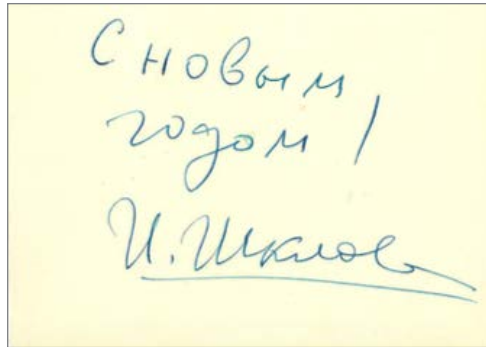 С новым
годом!
И. Шклов